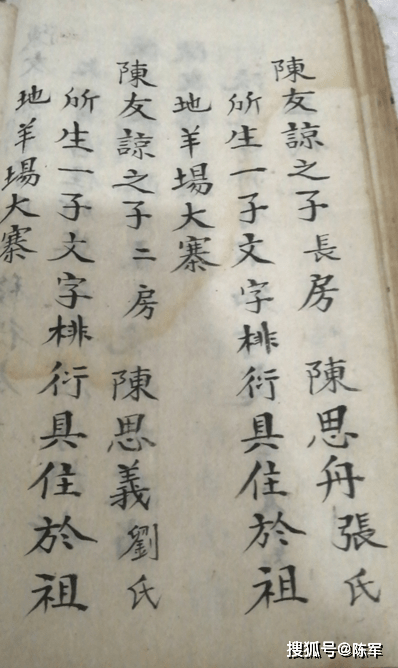 陳友諒之子長房　陳思舟張氏
所生一子文字排衍具住於祖
地羊場大寨
陳友諒之子二房　陳思義劉氏
所生一子文字排衍具住於祖
地羊場大寨
搜狐号@陈军